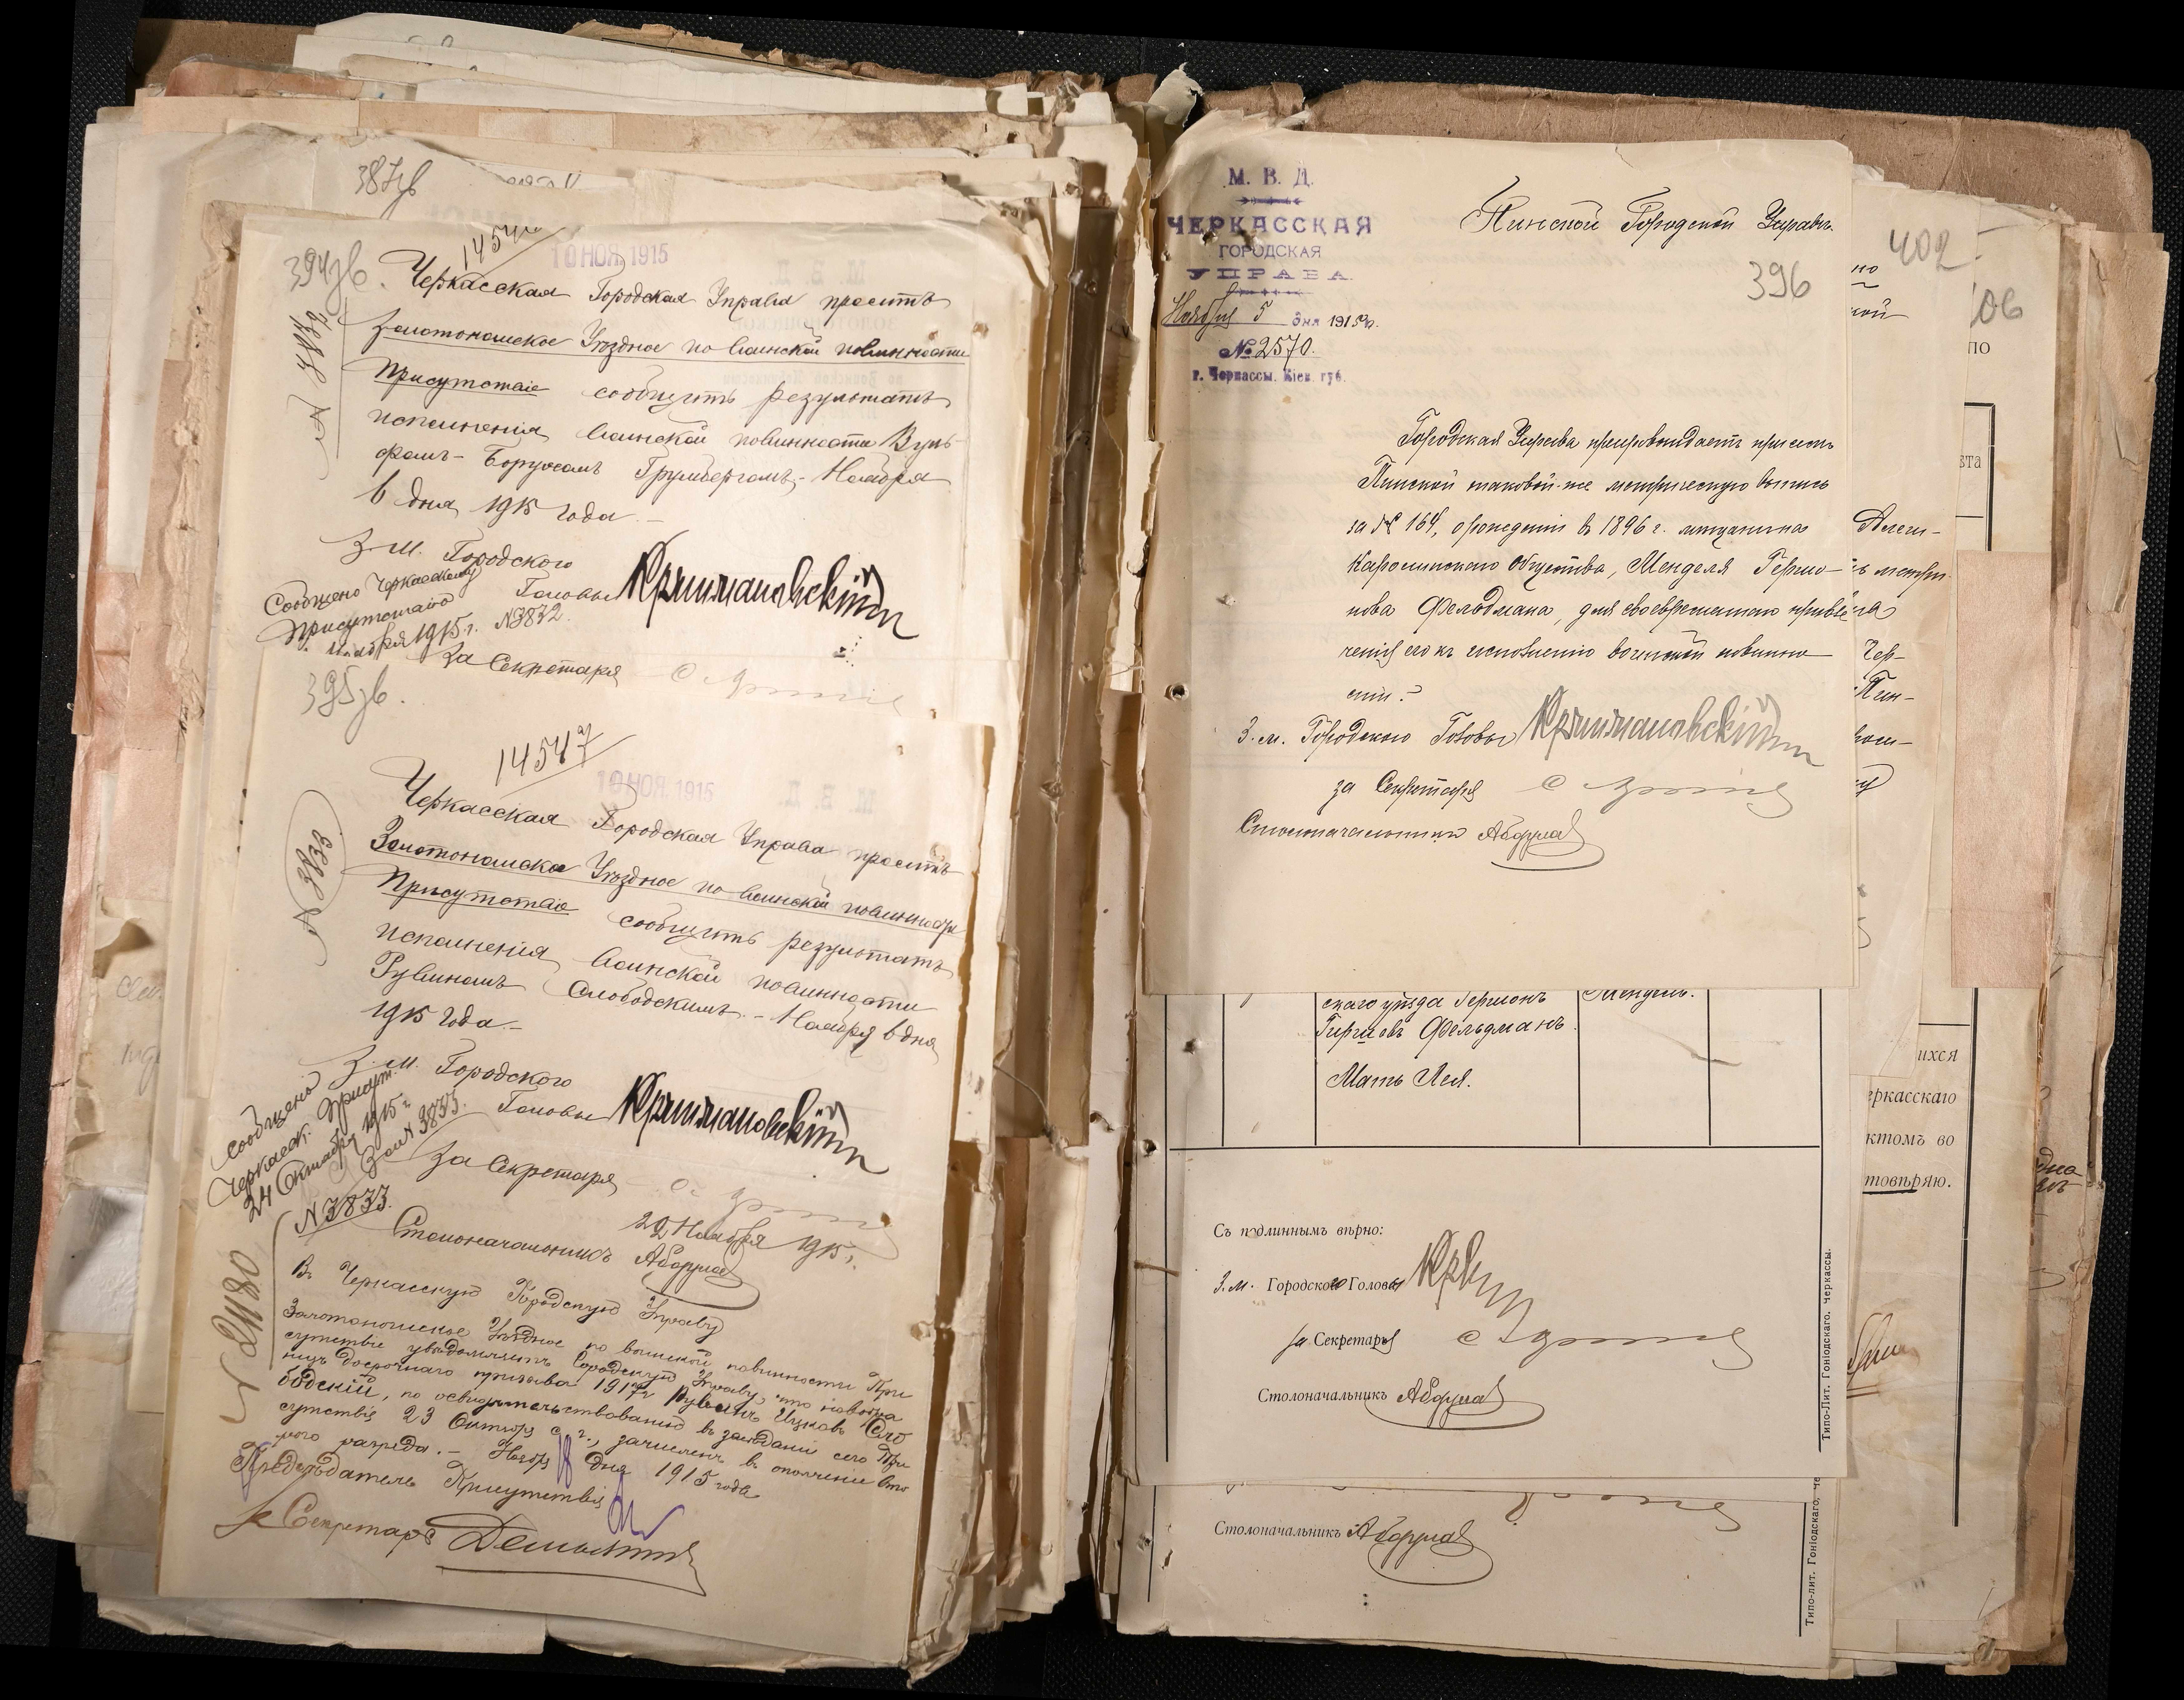 387зв
394зв.
14546
10 НОЯ. 1915
Черкасская Городская Управа проситъ
Золотоношское Уѣздное по воинской повинности
Присутствіе сообщить результатъ
исполненія воинской повинности Вуль-
фомъ-Борухомъ Грумбергомъ.- Ноября
6 дня 1915 года.-
З. м. Городского
Головы
Сообщено Черкасскому
Присутствію
ноября 1915 г. №3832.
За Секретаря
395зв.
14547
10 НОЯ. 1915
№ 3833
Черкасская Городская Управа проситъ
Золотоношское Уѣздное по воинской повинности
Присутствіе сообщить результатъ
исполненія воинской повинности
Рувиномъ Слободскимъ.- Ноября 6 дня
1915 года.-
З. м. Городского
Головы
Сообщено
Черкасск. Присут.
24 Октября 1915 г.
За Секретаря
№3833.
Столоначальникъ
22 Ноября 1915 г.
№ 2180
Въ Черкасскую Городскую Управу
Золотоношское Уѣздное по воинской повинности При
сутствіе увѣдомляетъ Городскую Управу, что новобра
нецъ досрочнаго призыва 1917 г. Рувинъ Ицковъ Сло
бодскій, по освидѣтельствованію въ засѣданіи сего При
сутствія 23 Октября с. г., зачисленъ въ ополченіе вто
рого разряда.- Ноября 18 дня 1915 года
Предсѣдатель Присутствія
Секретарь
М. В. Д.
ЧЕРКАССКАЯ
ГОРОДСКАЯ
УПРАВА
Ноября 5 дня 1915 г.
№ 2570.
г. Черкассы. Кіев. губ.
Пинской Городской Управѣ.
396
Городская Управа препровождаетъ при семъ
Пинской таковой-же метрическую выпись
за № 164, о рожденіи въ 1896 г. мѣщанина
Каролинскаго Общества, Менделя Гершо-
нова Фельдмана, для своевременнаго привле
ченія его къ исполненію воинской повинно
сти.
З. м. Городского Головы
за Секретаря
Столоначальникъ
скаго уѣзда Гершонъ
Гиршовъ Фельдманъ.
Мать Лея.
Мендель.
Съ подлиннымъ вѣрно:
З. м. Городского Головы
за Секретаря
Столоначальникъ
Типо-Лит. Гоніодскаго. Черкассы.
Столоначальникъ
Типо-лит. Гоніодскаго, Че
402
06
по
ста
ихся
еркасскаго
ктомъ во
товѣряю.